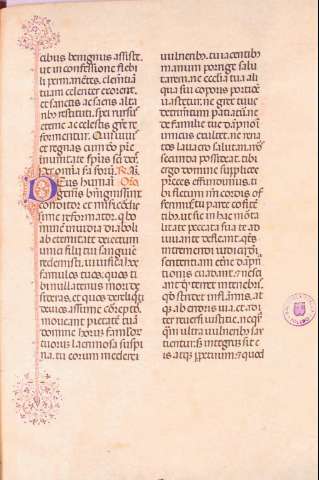 cibus benignus assiste.
ut in confessione flebi
li permanētes. clemētiā
tuam celerius exorent.
et sanctis ac sacris alta
ribus restituti. spei rursus
eterne ac celestis glorie re
formentur. Qui vivis
et regnas cum deo pa
in unitate spiritus sancti deus.
per omnia R. Am.
DEus humani Oro
generis benignissime
conditor et misericordis
sime reformator. q̄ ho
minē invidia diaboli
ab eternitate deiectum
unici filii tui sanguine
redemisti. vivifica hos
famulos tuos. quos ti
bi nullatenus mori de
sideras. et quos derelīquis
devios assume correptos.
moveant pietatē tuā
domine horum famulor
tuorum lacrimosa suspi
ria. tu eorum mederis
vulneribus. tu iacentibus
manum porrige saluta
rem. ne ecclesia tua ali
qua sui corporis portione
vastetur. ne grex tuus
detrimentum patiatur. ne
de familie tue dampno in
imicus exultet. ne rena
tos lavacro salutari mors
secunda possideat. tibi
ergo domine supplices
preces effundimus. ti
bi fletum cordis of
ferimus. tu parce confitē
tibus. ut sic in hac morta
litate peccata sua te ad
iuvante defleant. q̄tenus
in tremendi iudicii die.
sententiam eterne damp
tionis evadant. et nesci
ant quod terret in tenebris.
quod stridet in flammis. at
que ab erroris via. et ad i
ter reversi iustitie. nequa
quam ultra vulneribus sau
tientur. sed integrum sit e
is atque perpetuum. et quod